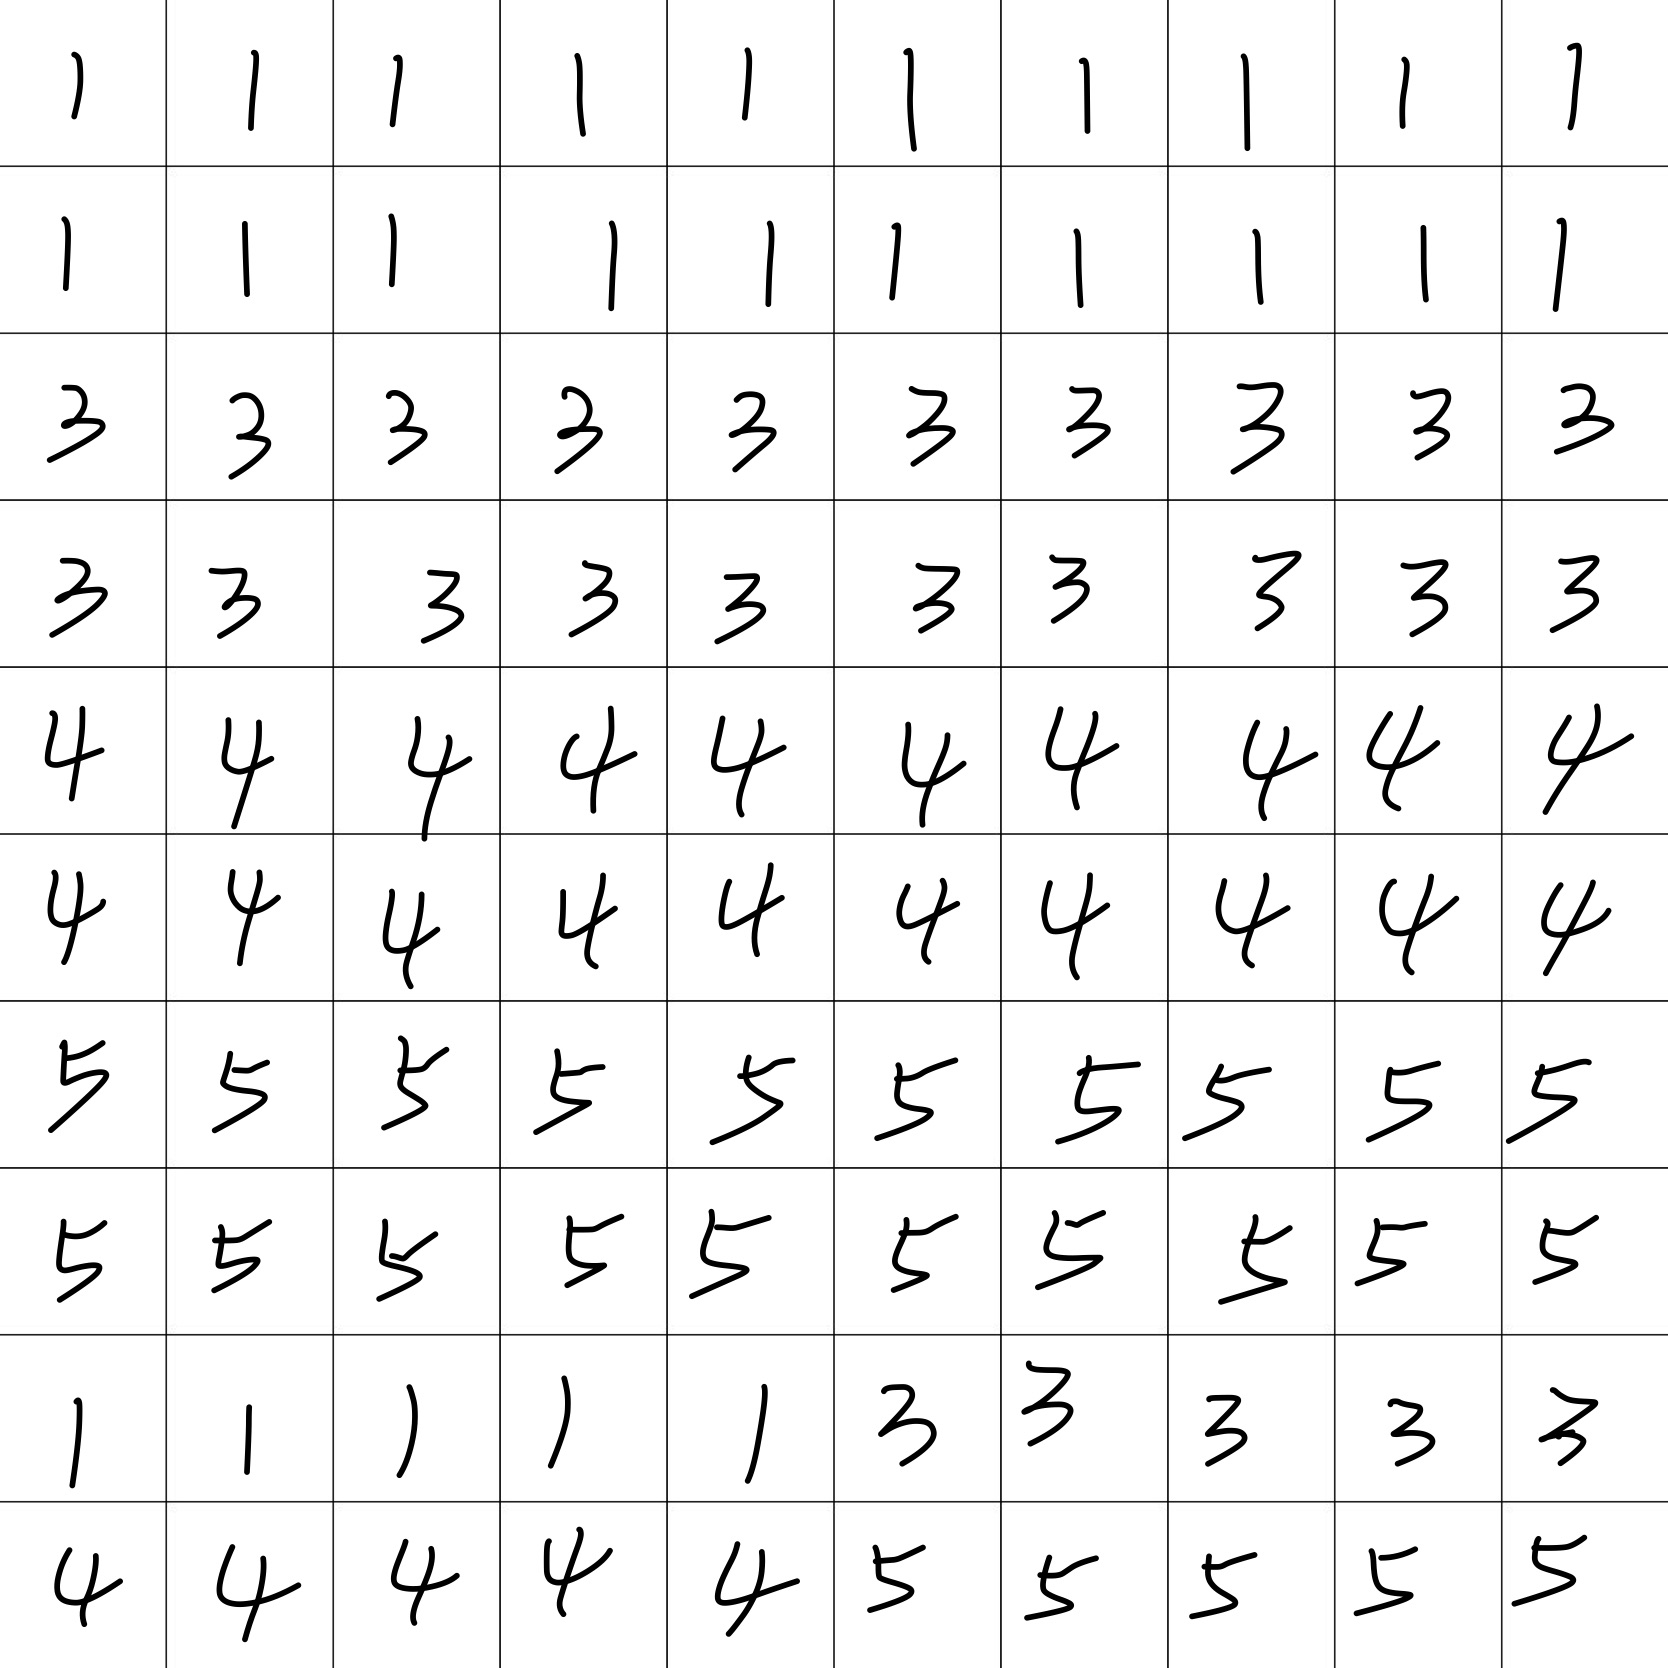 1 1 1 1 1 1 1 1 1 1
1 1 1 1 1 1 1 1 1 1
3 3 3 3 3 3 3 3 3 3
3 3 3 3 3 3 3 3 3 3
4 4 4 4 4 4 4 4 4 4
4 4 4 4 4 4 4 4 4 4
5 5 5 5 5 5 5 5 5 5
5 5 5 5 5 5 5 5 5 5
1 1 1 1 1 3 3 3 3 3
4 4 4 4 4 5 5 5 5 5